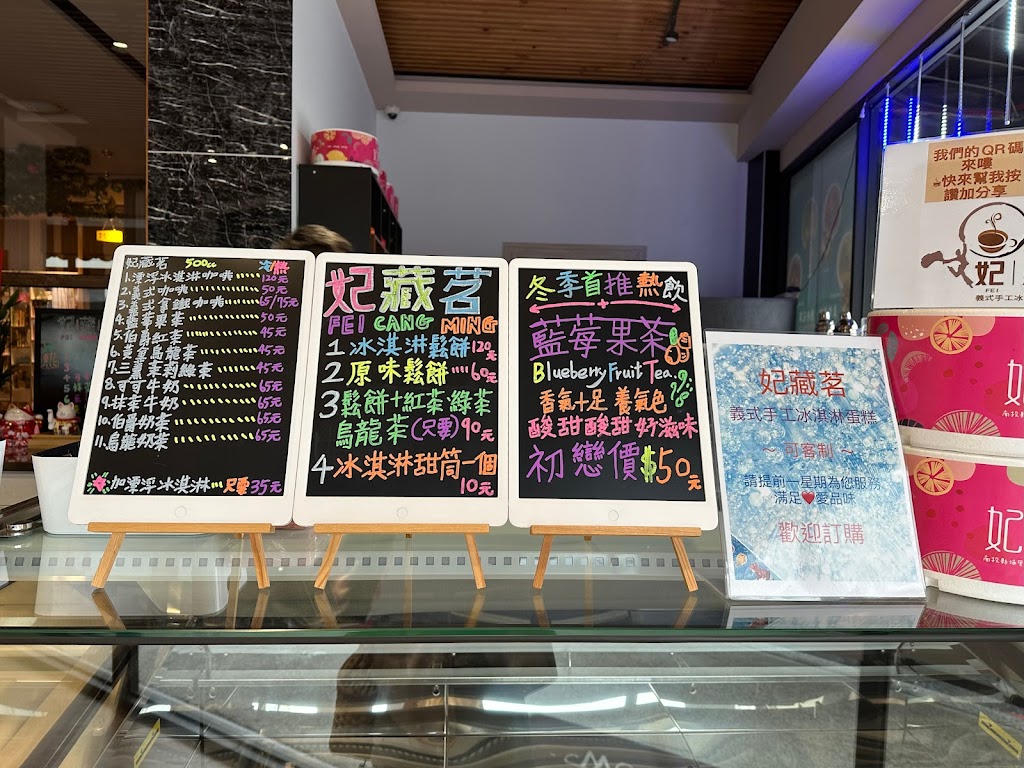 妃藏茗 500cc 冷/熱
1.漂浮冰淇淋咖啡 120元
2.義式咖啡 50元
3.義式拿鐵咖啡 65/75元
4.藍莓果茶 50元
5.伯爵紅茶 45元
6.黃金烏龍茶 45元
7.三窨茉莉綠茶 45元
8.可可牛奶 65元
9.抹茶牛奶 65元
10.伯爵奶茶 65元
11.烏龍奶茶 65元
加漂浮冰淇淋 只要35元
妃藏茗
FEI CANG MING
1 冰淇淋鬆餅120元
2 原味鬆餅 60元
3 鬆餅+紅茶·綠茶
烏龍茶(只要)90元
4 冰淇淋甜筒一個
10元
冬季首推熱飲
藍莓果茶
Blueberry Fruit Tea
香氣十足 養氣色
酸甜酸甜好滋味
初戀價$50元
妃藏茗
義式手工冰淇淋蛋糕
~ 可客制 ~
請提前一星期為您服務
滿足❤愛品味
歡迎訂購
我們的QR碼
來嘍
快來幫我按
讚加分享
妃
FEI
義式手工冰
妃